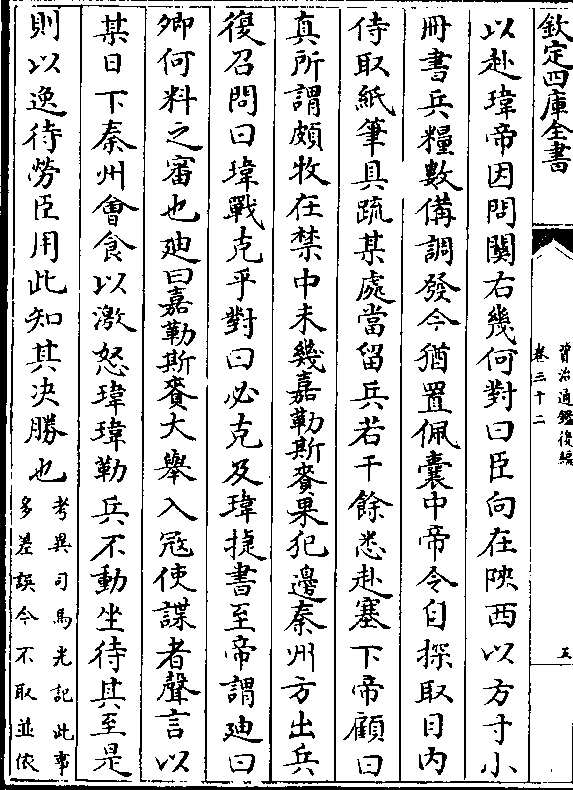 欽定四庫全書
資治通鑑後編
卷三十二
五
以赴瑋帝因問關右幾何對曰臣向在陝西以方寸小
冊書兵糧數備調發今猶置佩囊中帝令自探取目内
侍取紙筆具疏某處當留兵若干餘悉赴塞下帝顧曰
真所謂頗牧在禁中未幾嘉勒斯賚果犯邊秦州方出兵
復召問曰瑋戰克乎對曰必克及瑋捷書至帝謂廸曰
卿何料之審也廸曰嘉勒斯賚大舉入寇使諜者聲言以
某日下秦州會食以激怒瑋瑋勒兵不動坐待其至是
則以逸待勞臣用此知其決勝也
考異司馬光記此事
多差誤今不取並依